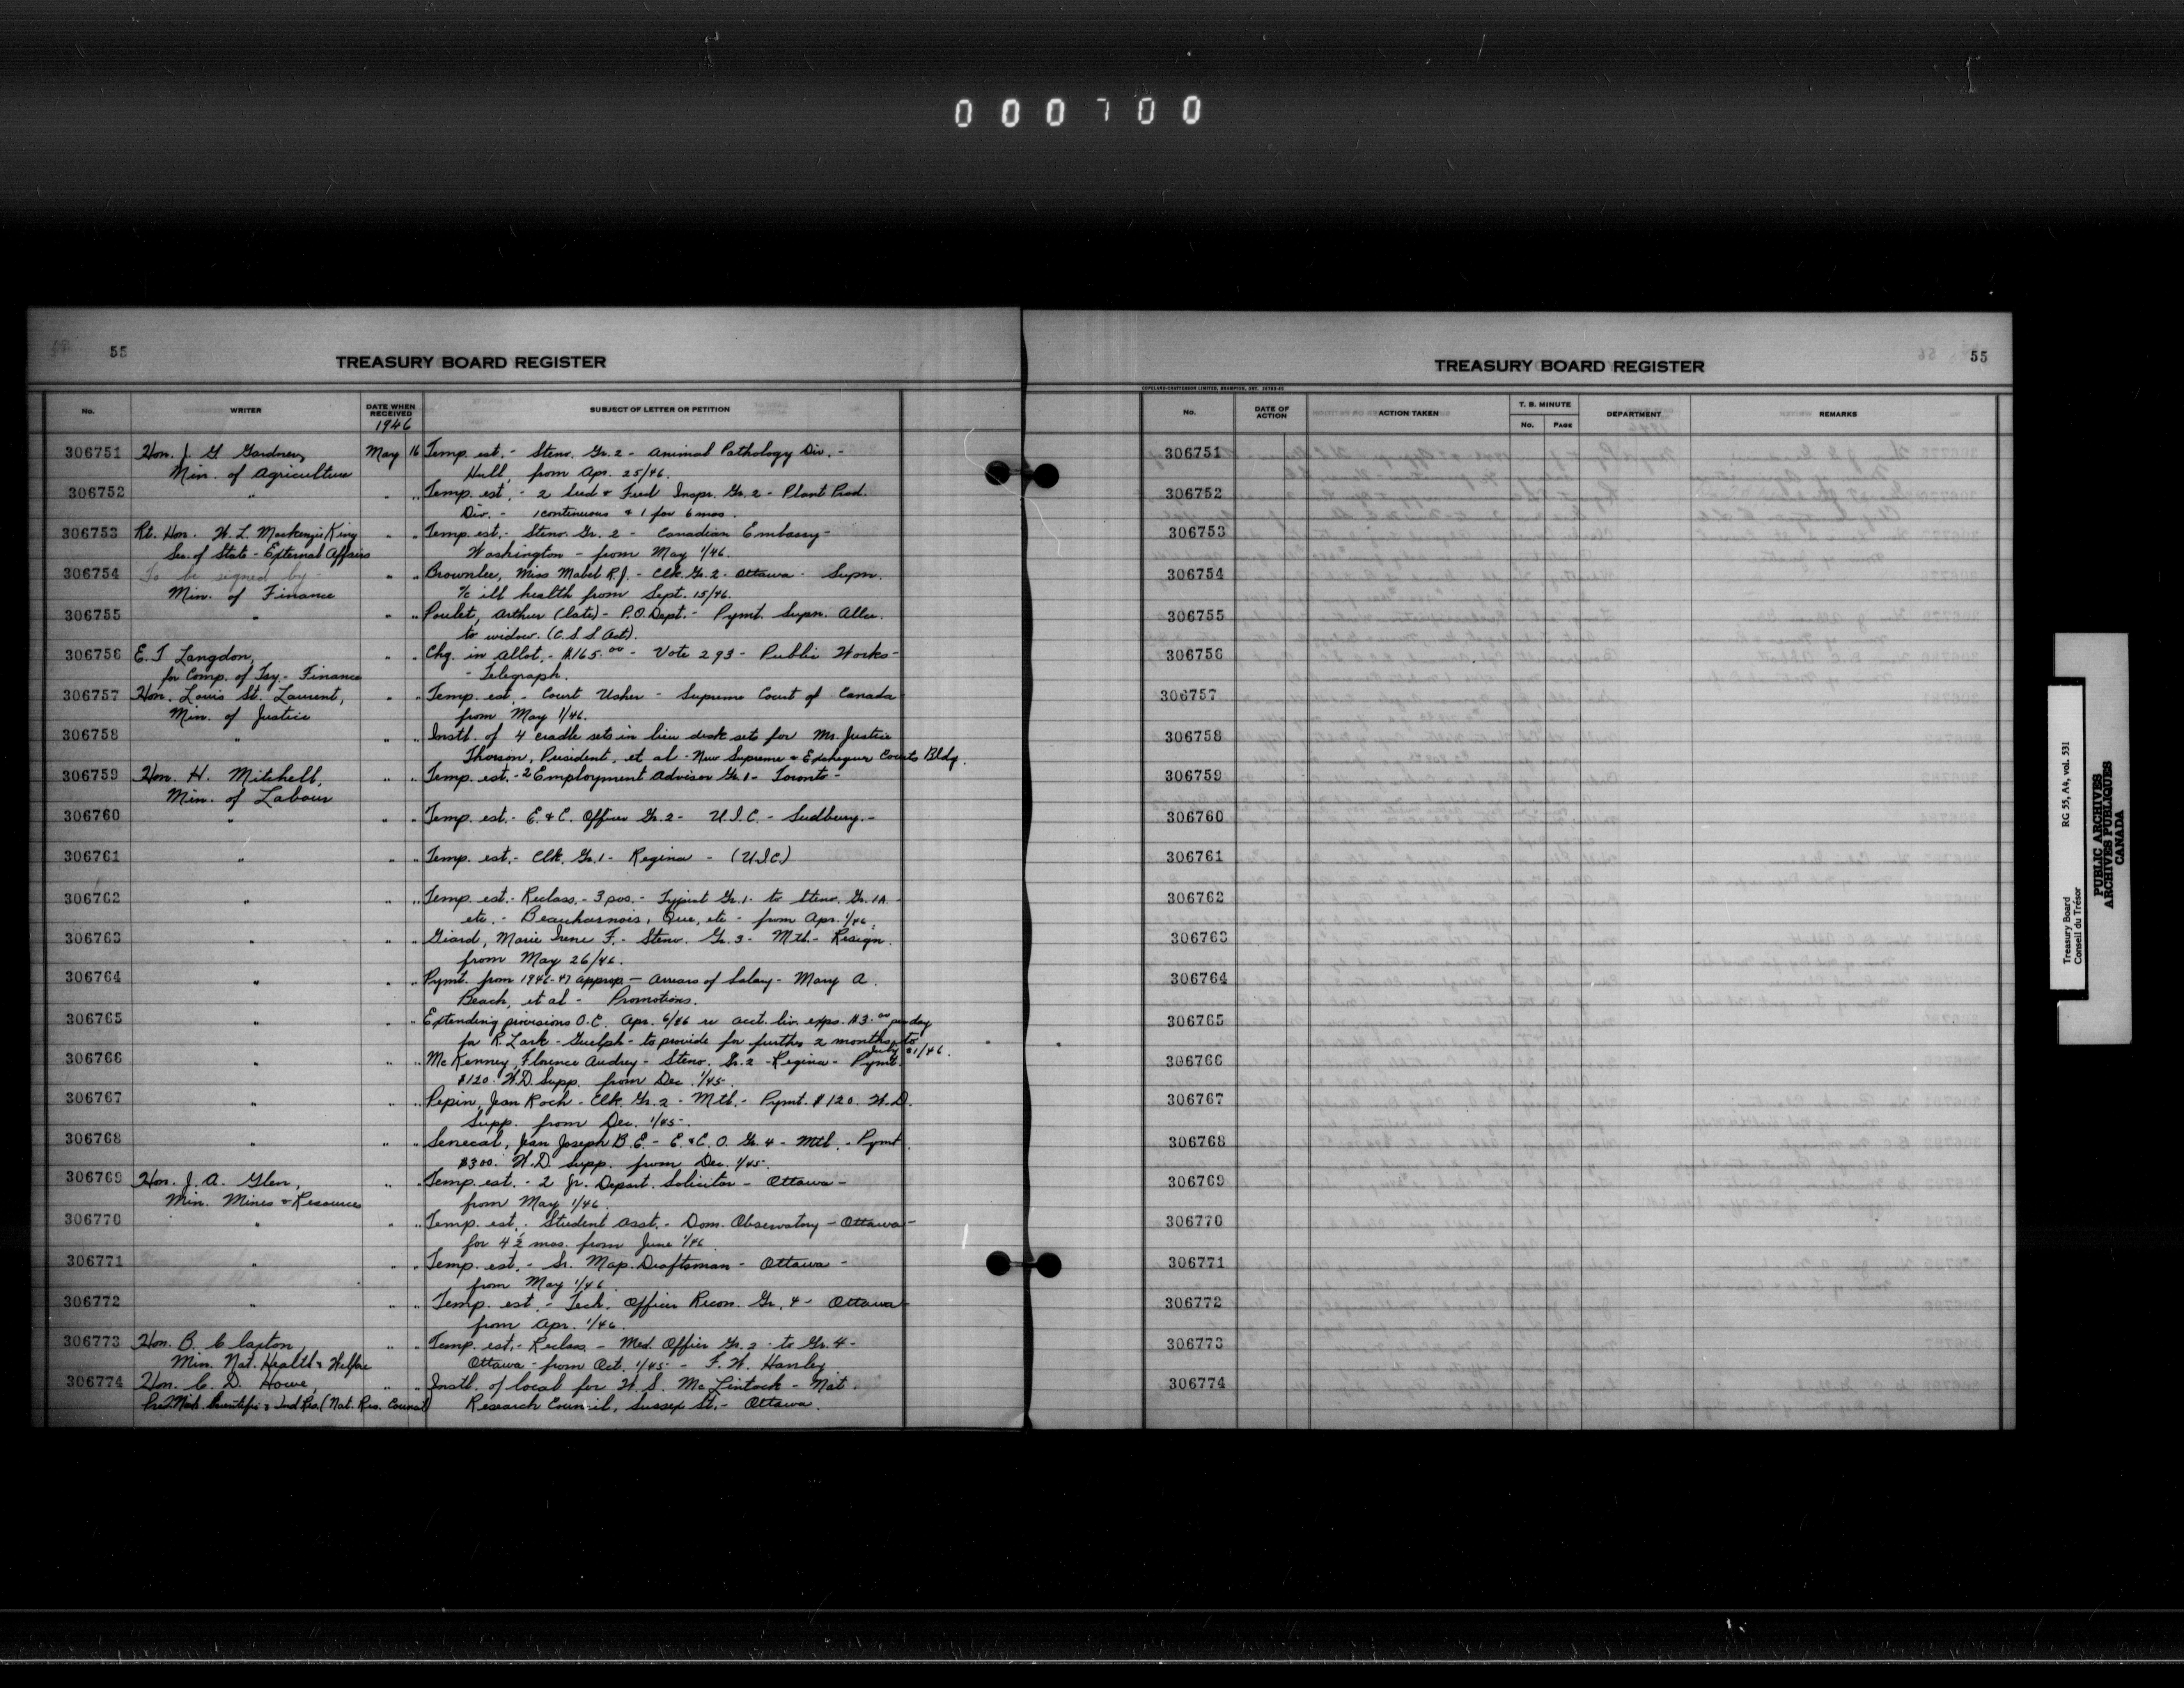 000700
55
TREASURY BOARD REGISTER
No.
WRITER
DATE WHEN RECEIVED
1946
SUBJECT OF LETTER OR PETITION
306751 Hon. J. G Gardner, May 16 Temp. est. - Steno. Gr. 2 - Animal Pathology Div. -
Min. of Agriculture Hull, from Apr. 25/46.
306752 " " " Temp. est. - 2 Seed & Feed Inspr. Gr. 2 - Plant Prod.
Div. - 1 continuous & 1 for 6 mos.
306753 Rt. Hon. W. L. Mackenzie King " " Temp. est. - Steno. Gr. 2 - Canadian Embassy -
Sec. of State - External Affairs Washington - from May 1/46.
306754 To be signed by - " " Brownlee, Miss Mabel R. J. - Clk. Gr. 2 - Ottawa - Supn.
Min. of Finance a/c ill health from Sept. 15/46.
306755 " " " Poulet, Arthur (late) - P.O. Dept. - Pymt. Supn. Allce.
to widow. (C. S. S. Act).
306756 E. T Langdon, " " Chg. in Allot. - $165.00 - Vote 293 - Public Works -
for Comp. of Tsy. - Finance - Telegraph.
306757 Hon. Louis St. Laurent, " " Temp. est. - Court Usher - Supreme Court of Canada
Min. of Justice from May 1/46.
306758 " " " Instl. of 4 cradle sets in lieu desk sets for Mr. Justice
Thorson, President, et al - New Supreme & Exchequer Courts Bldg.
306759 Hon. H. Mitchell, " " Temp. est. - 2 Employment Advisor Gr. 1 - Toronto -
Min. of Labour
306760 " " " Temp. est. - E. & C. Officer Gr. 2 - U. I. C. - Sudbury. -
306761 " " " Temp. est. - Clk. Gr. 1 - Regina - (U.I.C)
306762 " " " Temp. est. - Reclass. - 3 pos. - Typist Gr. 1 - to Steno. Gr. 1A -
etc. - Beauharnois, Que, etc - from Apr. 1/46.
306763 " " " Giard, Marie Irene F. - Steno. Gr. 3 - Mtl. - Resign.
from May 26/46.
306764 " " " Pymt. from 1946-47 approp - Arrears of Salary - Mary A.
Beach, et al - Promotions.
306765 " " " Extending provisions O.C. Apr. 6/46 re acct. liv. exps. $3.00 per day
for R. Lark - Guelph - to provide for further 2 months to
July 21/46.
306766 " " " McKenney, Florence Audrey - Steno. Gr. 2 - Regina - Pymt.
$120. W.D. Supp. from Dec. 1/45.
306767 " " " Pepin, Jean Roch - Clk. Gr. 2 - Mtl. - Pymt. $120. W.D.
Supp. from Dec. 1/45.
306768 " " " Senecal, Jean Joseph B. E. - E. & C. O. Gr. 4 - Mtl. - Pymt
$300. W.D. Supp. from Dec. 1/45.
306769 Hon. J. A. Glen, " " Temp. est. - 2 Jr. Depart. Solicitor - Ottawa -
Min. Mines & Resources from May 1/46.
306770 " " " Temp. est. - Student Asst. - Dom. Observatory - Ottawa -
for 4 1/2 mos. from June 1/46.
306771 " " " Temp. est. - Sr. Map. Draftsman - Ottawa -
from May 1/46
306772 " " " Temp. est. - Tech. Officer Recon. Gr. 4 - Ottawa -
from Apr. 1/46.
306773 Hon. B. Claxton, " " Temp. est. - Reclass - Med. Officer Gr. 3 - to Gr. 4 -
Min. Nat. Health & Welfare Ottawa - from Oct. 1/45 - F. W. Hanley.
306774 Hon. C. D. Howe, " " Instl. of local for W. S. McLintock - Nat.
Scientific & Ind Res. (Nat. Res. Council) Research Council, Sussex St. - Ottawa.
55
TREASURY BOARD REGISTER
COPELAND-CHATTERSON LIMITED, BRAMPTON, ONT.
No.
DATE OF ACTION
ACTION TAKEN
T. B. MINUTE
No.
PAGE
DEPARTMENT
REMARKS
306751
306752
306753
306754
306755
306756
306757
306758
306759
306760
306761
306762
306763
306764
306765
306766
306767
306768
306769
306770
306771
306772
306773
306774
Treasury Board
Conseil du Trésor
RG 55, A4, vol. 531
PUBLIC ARCHIVES
ARCHIVES PUBLIQUES
CANADA